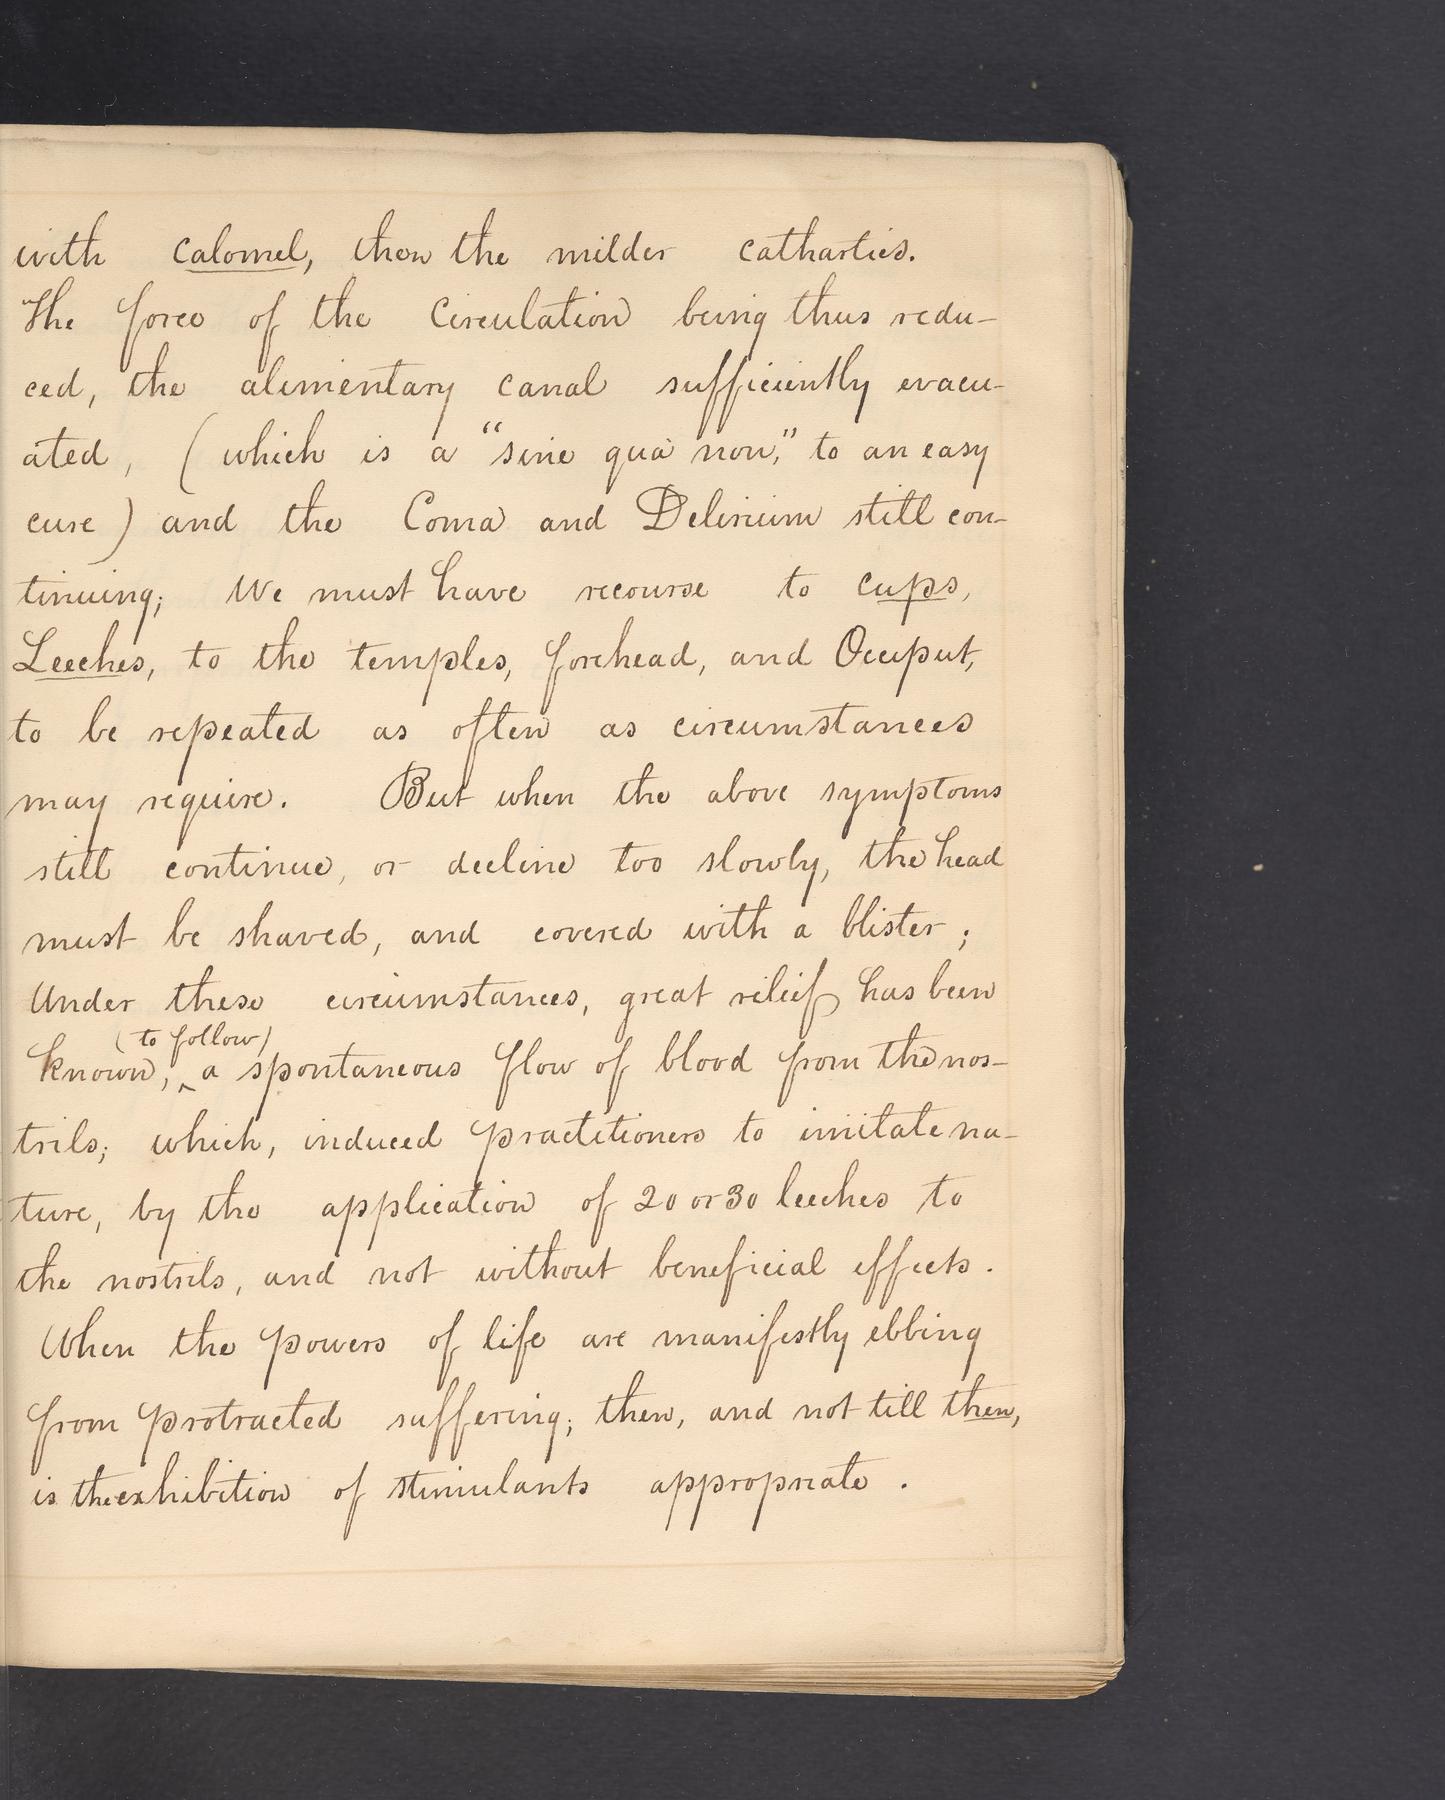 with calomel, then the milder cathartics.
The force of the Circulation being thus redu-
ced, the alimentary canal sufficiently evacu-
ated, (which is a "sine quà non," to an easy
cure) and the Coma and Delirium still con-
tinuing; We must have recourse to cups,
Leeches, to the temples, forehead, and Occiput,
to be repeated as often as circumstances
may require. But when the above symptoms
still continue, or decline too slowly, the head
must be shaved, and covered with a blister;
Under these circumstances, great relief has been
(to follow)
known, ‸ a spontaneous flow of blood from the nos-
trils; which, induced practitioners to imitate na-
ture, by the application of 20 or 30 leeches to
the nostrils, and not without beneficial effects.
When the powers of life are manifestly ebbing
from protracted suffering; then, and not till then,
is the exhibition of stimulants appropriate.